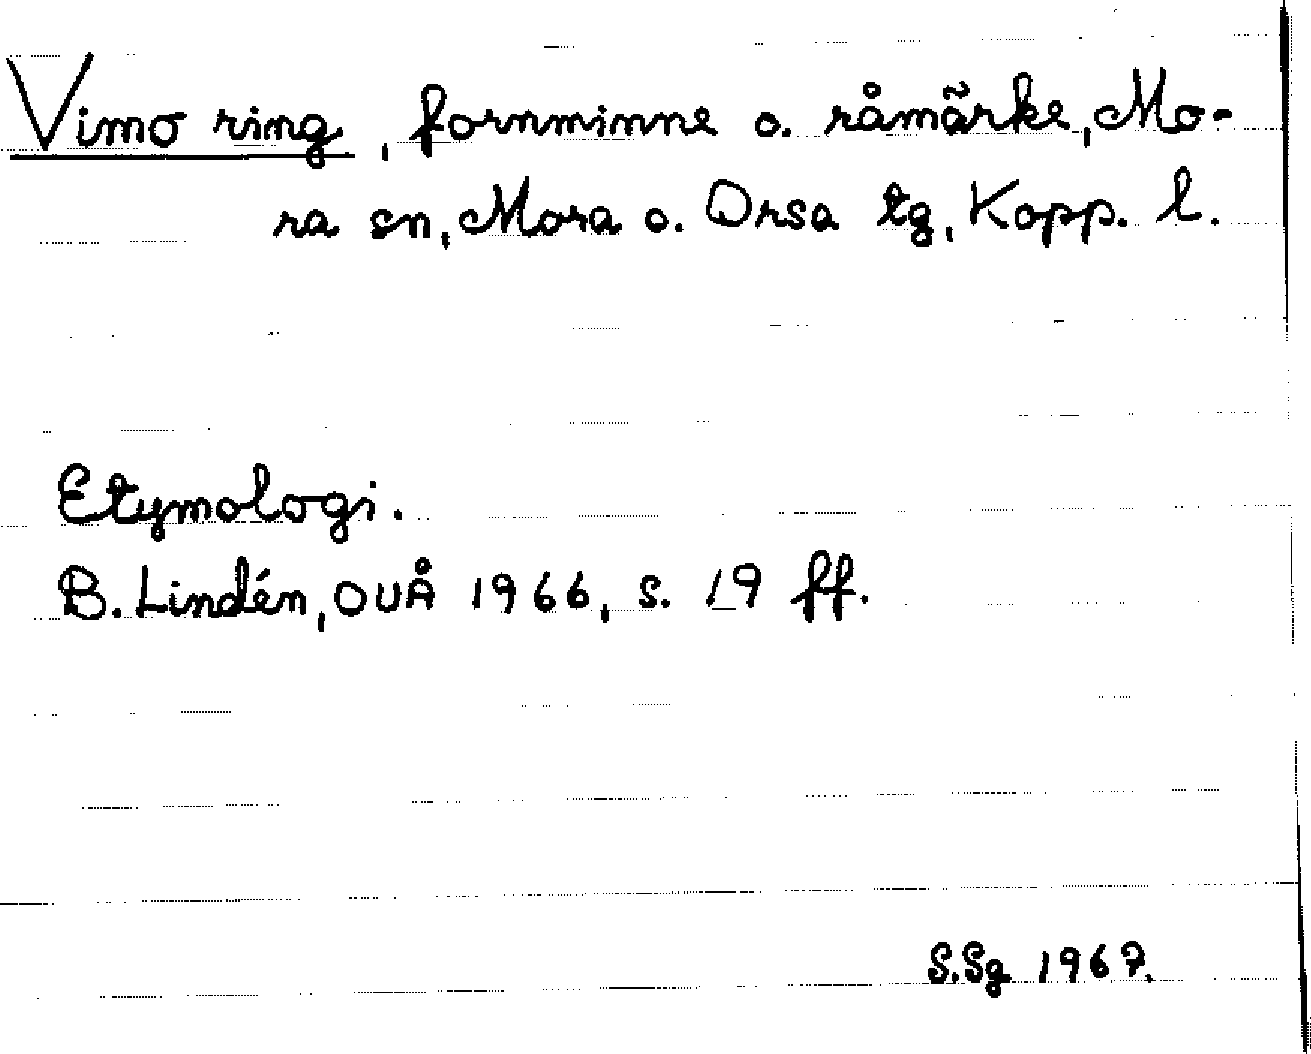 Vimo ring, fornminne o. råmärke, Mo-
ra sn, Mora o. Orsa tg, Kopp. l.
Etymologi.
B. Lindén, OUÅ 1966, s. 19 ff.
S.Sg 1967.